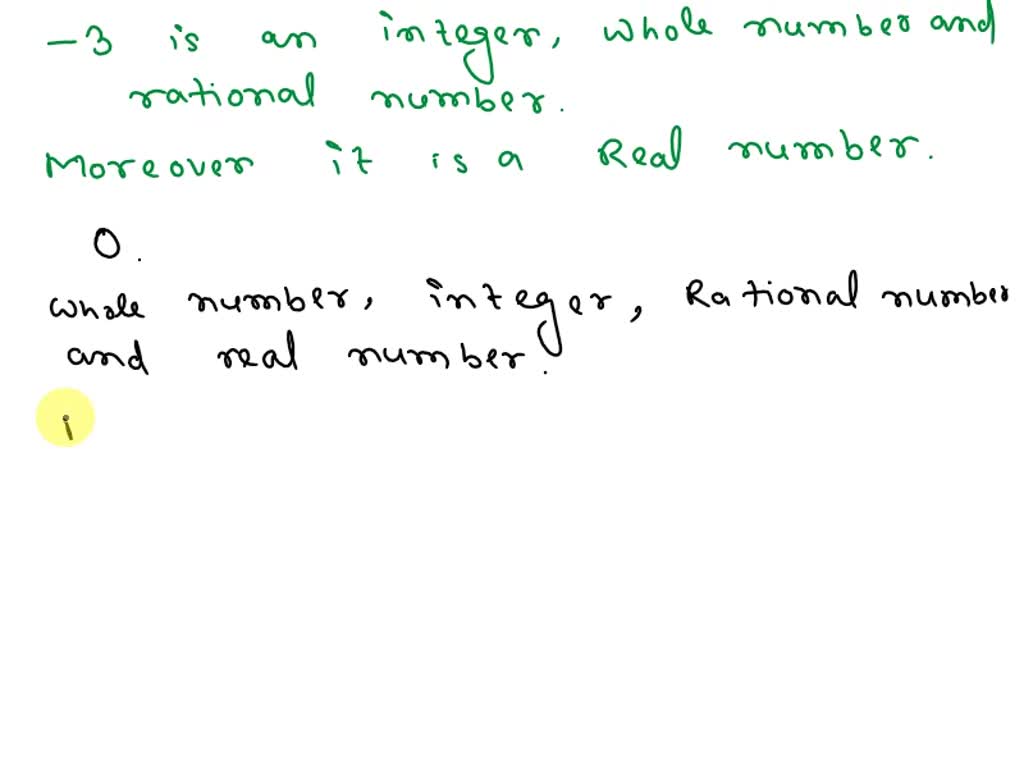 -3 is an integer, whole number and
rational number.
Moreover it is a Real number.
0.
whole number, integer, Rational number
and real number.
i